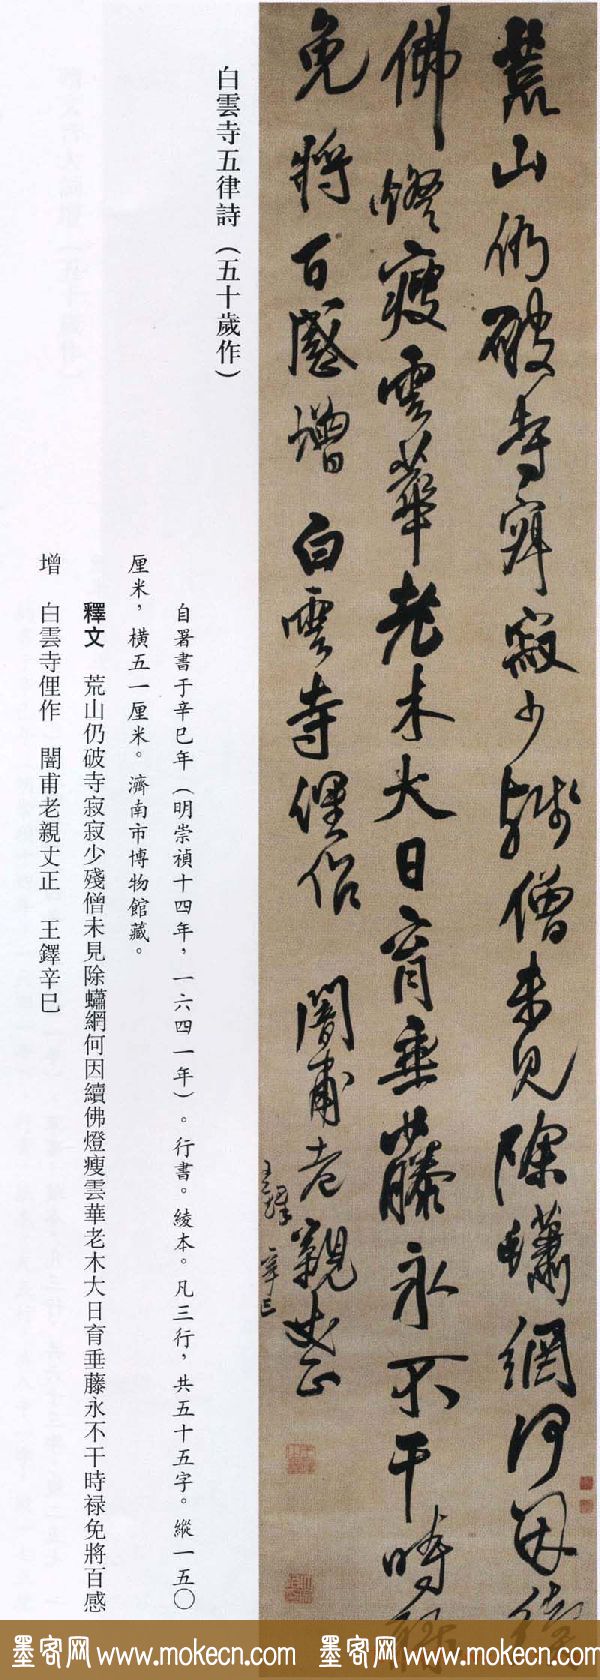 荒山仍破寺寂寂少殘僧未見除蠨網何因續
佛燈瘦雲華老木大日育垂藤永不干時祿
免將百感增 白雲寺俚作 闇甫老親丈正
王鐸 辛巳
白雲寺五律詩（五十歲作）
自署書于辛巳年（明崇禎十四年，一六四一年）。行書。綾本。凡三行，共五十五字。縱一五〇
厘米，橫五一厘米。濟南市博物館藏。
釋文 荒山仍破寺寂寂少殘僧未見除蠨網何因續佛燈瘦雲華老木大日育垂藤永不干時禄免將百感
增 白雲寺俚作 闇甫老親丈正 王鐸辛巳
墨客网 www.mokecn.com 墨客网 www.mokecn.com